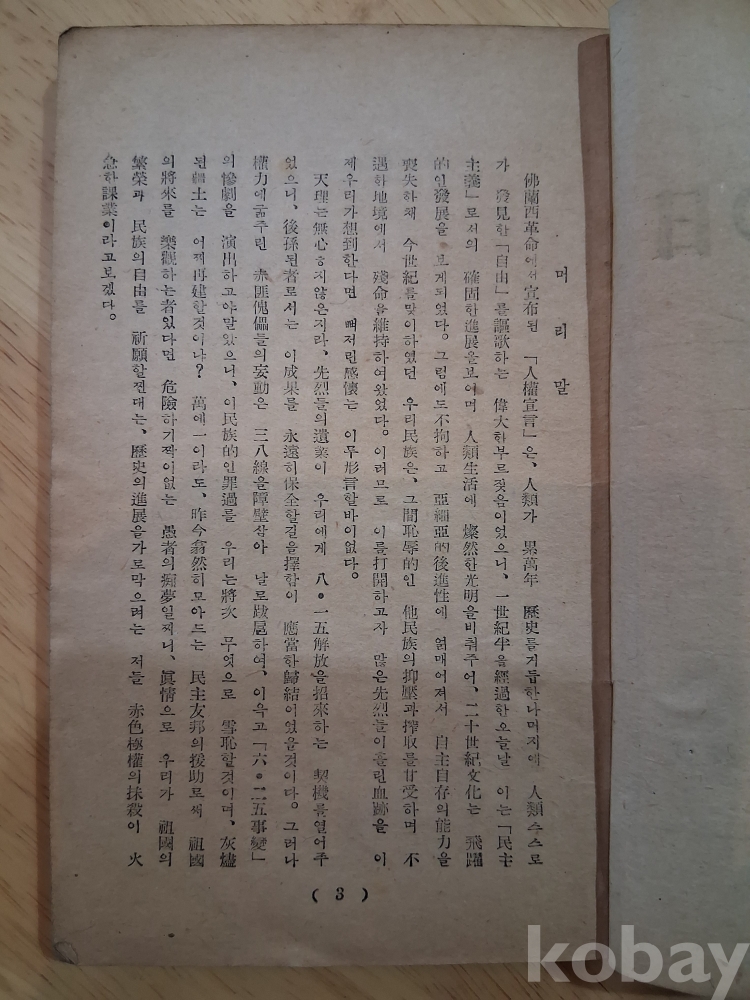 머리말
佛蘭西革命에서宣布된 「人權宣言」은, 人類가 累萬年 歷史를거듭한나머지에 人類스스로
가 發見한「自由」를謳歌하는 偉大한부르짖음이었으니, 一世紀半을經過한오늘날 이는「民主
主義」로서의 確固한進展을보여며 人類生活에 燦然한光明을비춰주어, 二十世紀文化는 飛躍
的인發展을 보게되었다. 그럼에도不拘하고 亞細亞的後進性에 얽매어져서 自主自存의能力을
喪失하채 今世紀를맞이하였던 우리民族은, 그間恥辱的인 他民族의抑壓과搾取를甘受하며 不
遇한地境에서 殘命을維持하여왔었다. 이러므로 이를打開하고자 많은先烈들이흘린血跡을 이
제우리가想到한다면 뼈저린感懷는 이루形言할바이없다.
天理는無心ㅎ지않은지라, 先烈들의遺業이 우리에게 八•一五解放을招來하는 契機를열어주
었으니, 後孫된者로서는 이成果를 永遠히保全할길을擇함이 應當한歸結이었을것이다. 그러나
權力에굶주린 赤匪傀儡들의妄動은 三八線을障壁삼아 날로跋扈하여, 이윽고「六•二五事變」
의慘劇을 演出하고야말았으니, 이民族的인罪過를 우리는將次 무엇으로 雪恥할것이며, 灰燼
된疆土는 어찌再建할것이냐? 萬에一이라도, 昨今翕然히모아드는 民主友邦의援助로써 祖國
의將來를 樂觀하는者있다면 危險하기짝이없는 愚者의痴夢일찌니, 眞情으로 우리가 祖國의
繁榮과 民族의自由를 祈願할찐대는, 歷史의進展을가로막으려는 저들 赤色極權의抹殺이 火
急한課業이라고보겠다.
( 3 )
kobay